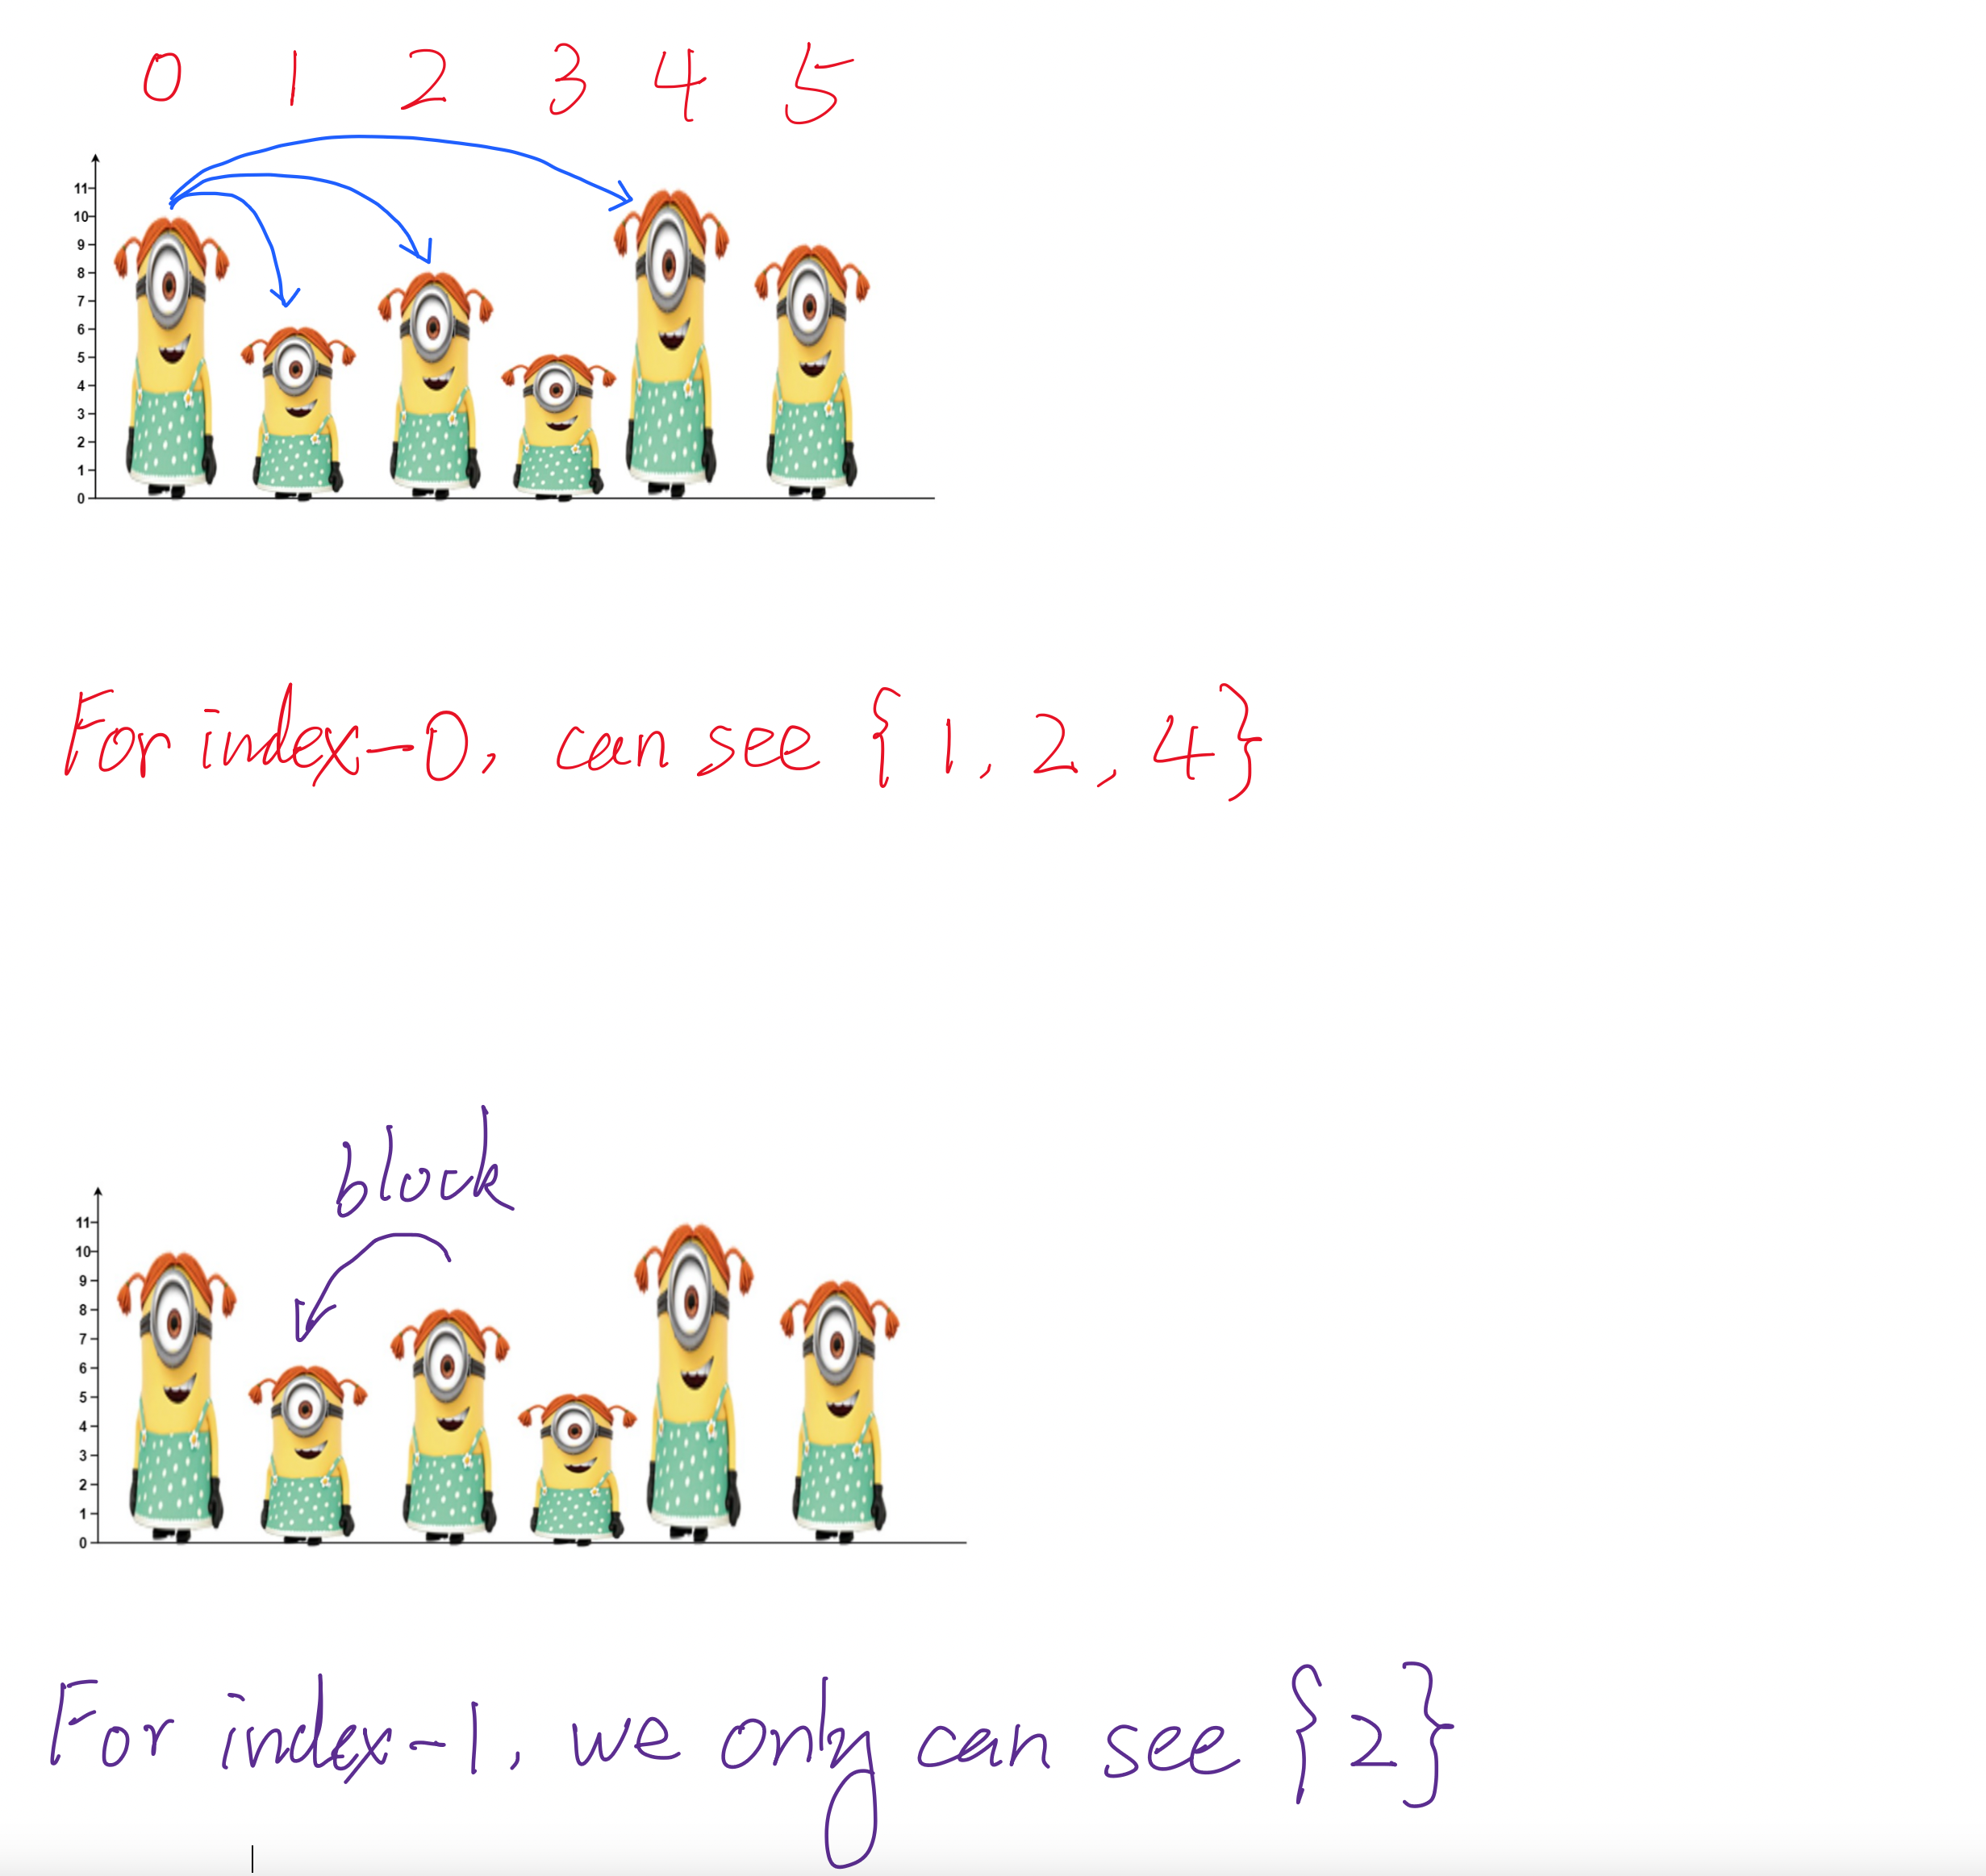 0 1 2 3 4 5
11
10
9
8
7
6
5
4
3
2
1
0
For index-0, can see {1, 2, 4}
block
11
10
9
8
7
6
5
4
3
2
1
0
For index-1, we only can see {2}